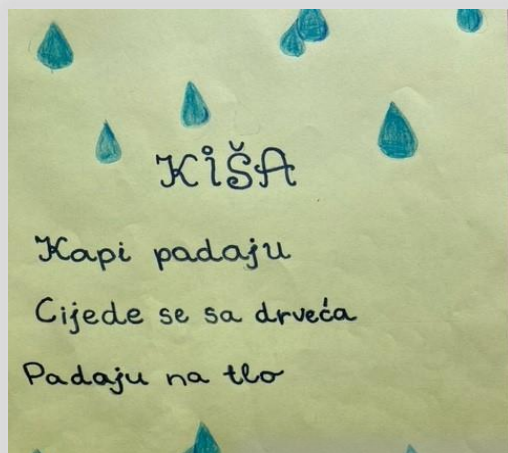 KIŠA
Kapi padaju
Cijede se sa drveća
Padaju na tlo